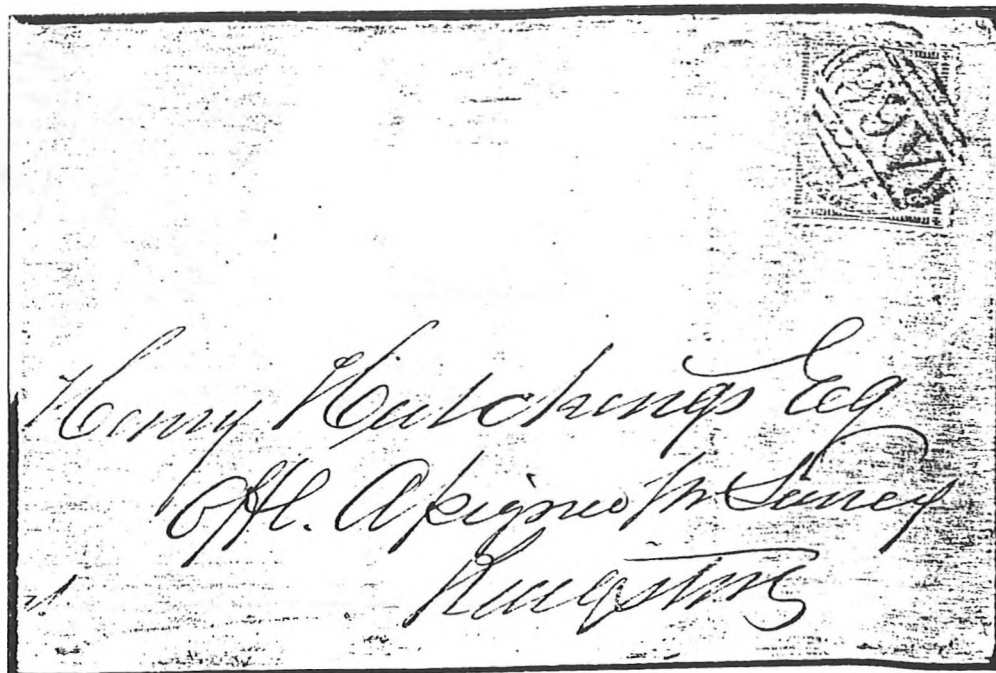 Henry Hutchings Esq
Offl. Assignee for Surrey
Kingston